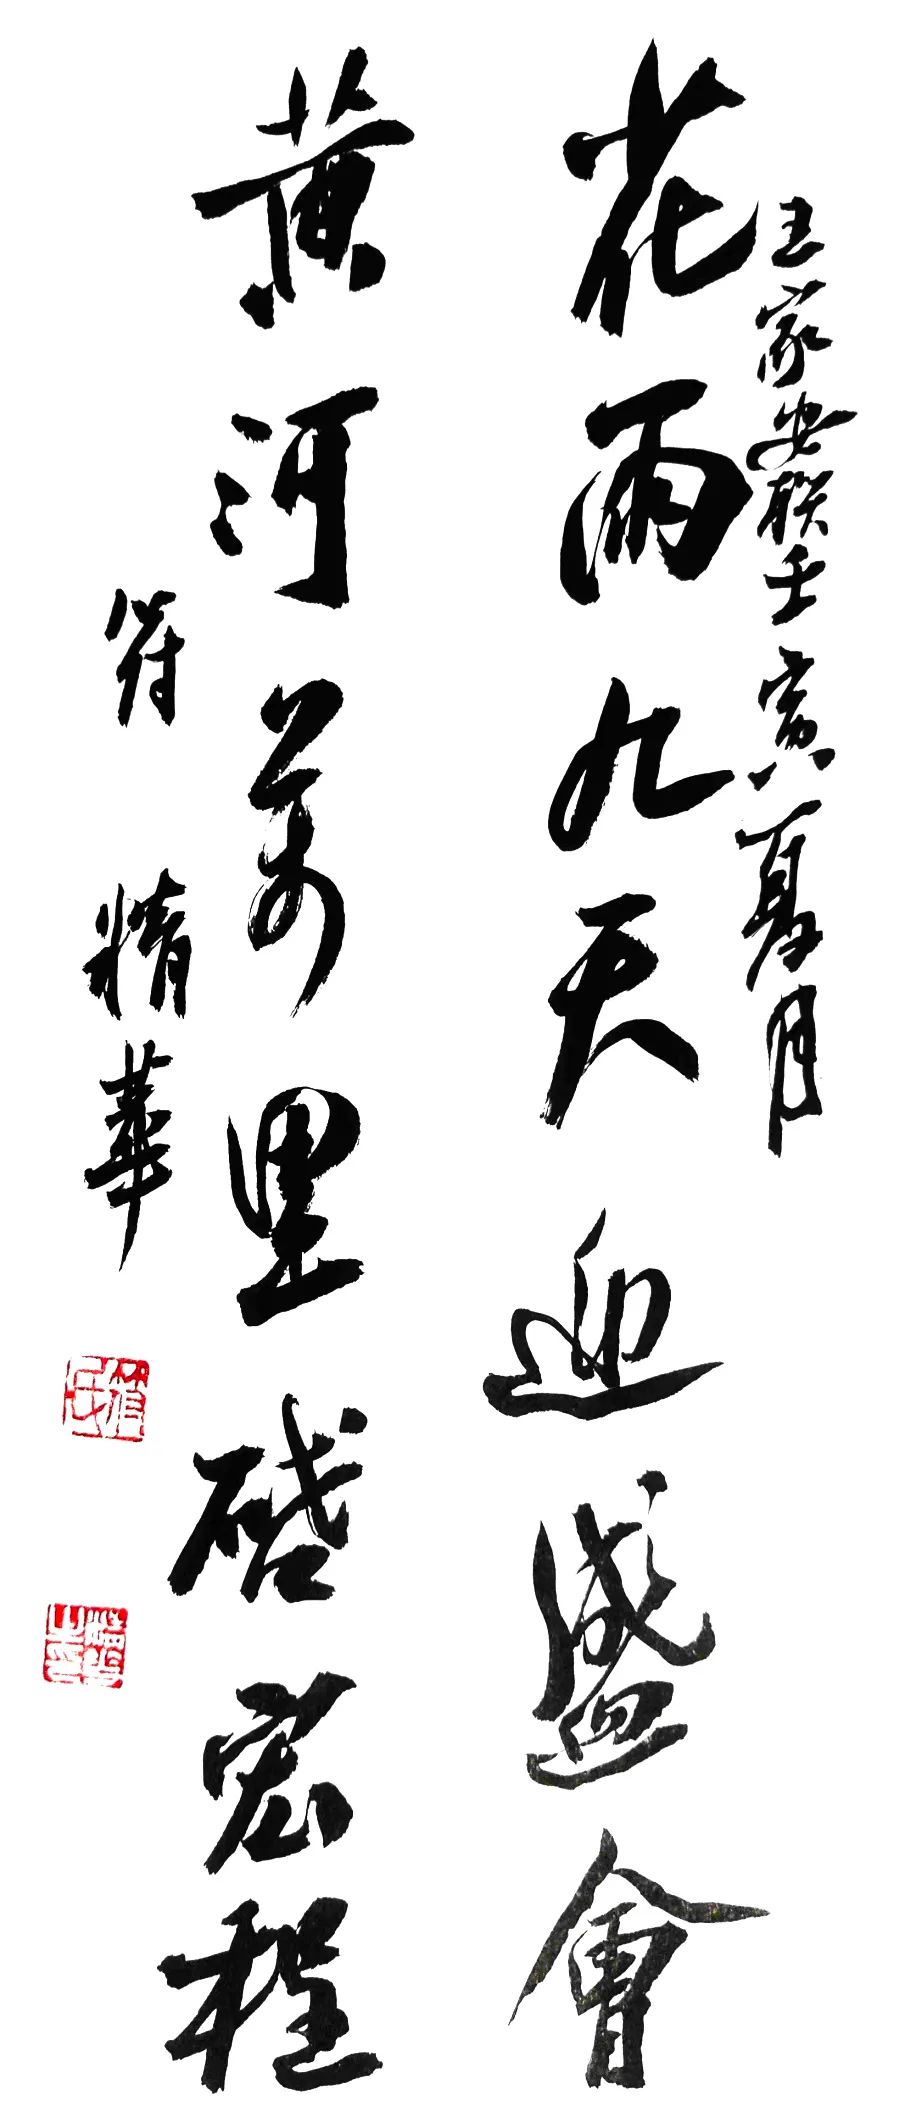 王家安联壬寅夏月
花雨九天迎盛會
黄河萬里啓宏程
符精華